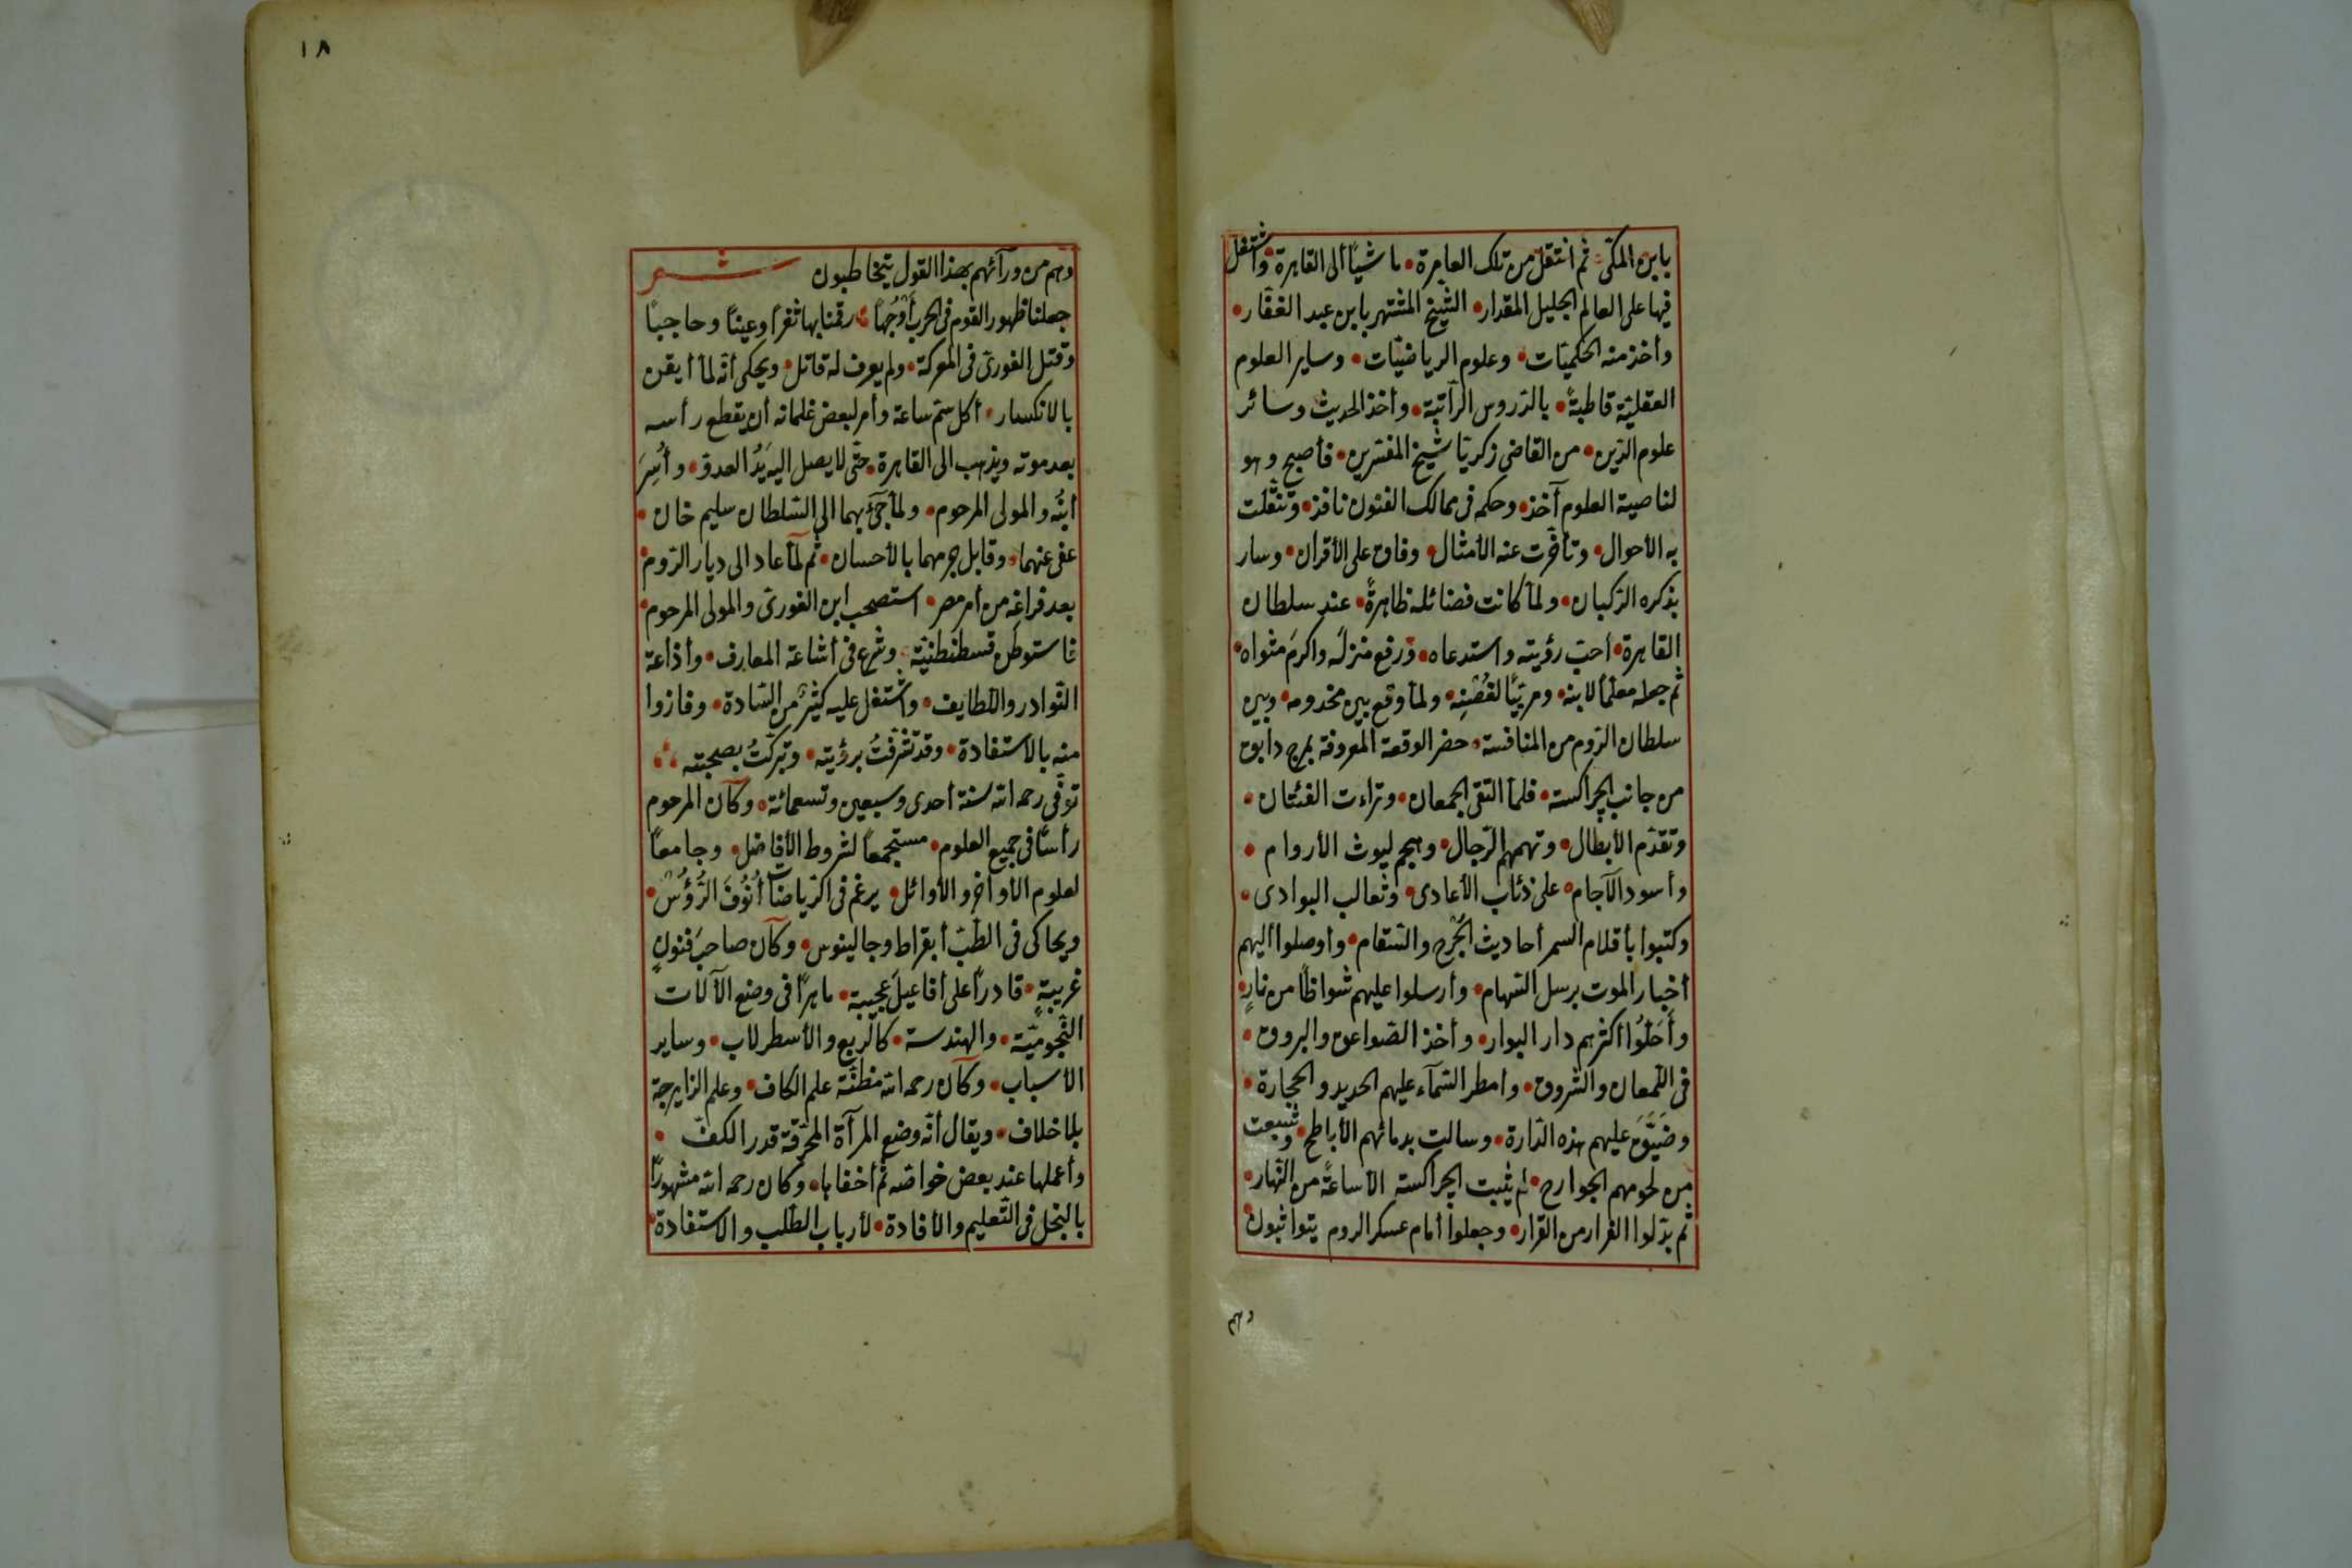 بابن المكّى ثم انتقل من تلك العامرة ماشيًا ألى القاهرة واشتغل
فيها على العالم الجليل المقدار الشّيخ المشتهر بابن عبد الغفّار
وأخذ منه الحكميّات وعلوم الرياضيّات وساير العلوم
العقليّة قاطبةً بالدّروس الرّاتبة وأخذ الحديث وسائر
علوم الدّين من القاضى زكريّا شيخ المفسّرين فأصبح وهو
لناصية العلوم آخذ وحكمه فى ممالك الفنون نافذ وتنقّلت
به الأحوال وتأخّرت عنه الأمثال وفاق على الأقران وسار
بذكره الرّكبان ولمّا كانت فضائله ظاهرةً عند سلطان
القاهرة أحبّ رؤيته واستدعاه ورفع منزله واكرم مثواه
ثم جعله معلّمًا لابنه ومربّيًا لغصنه ولمّا وقع بين مخدومه وبين
سلطان الرّوم من المنافسة حضر الوقعة المعروفة بمرج دابق
من جانب الچراكسته فلمّا التقى الجمعان وتراءت الفئتان
وتقدّم الأبطال وتهمهم الرّجال وهجم ليوث الأروام
وأسود الآجام على ذئاب الأعادى وثعالب البوادى
وكتبوا بأقلام السمر أحاديث الجرح والسّقام وأوصلوا أليهم
أخبار الموت برسل السّهام وأرسلوا عليهم شواظًا من نارٍ
وأَحَلُّوا أكثرهم دار البوار وأخذ الصّواعق والبروق
فى اللّمعان والشروق وامطر السّمآء عليهم الحديد والحجارة
وضيّق عليهم هذه الدّارة وسالت بدمائهم الأباطح وشبعت
من لحومهم الجوارح لم يثبت الچراكسته الّا ساعةً من النّهار
ثم بدّلوا الفرار من القرار وجعلوا أمام عسكر الروم يتواثبون
وهم
١٨
وهم من ورآئهم بهذا القول يتخاطبون شعر
جعلنا ظهور القوم فى الحرب أَوْجُهًا رقمنا بها ثغرًا وعينًا وحاجبًا
وقتل الغورىّ فى المعركة ولم يعرف له قاتل ويحكى أنّه لمّا أيقن
بالانكسار أكل سمّ ساعة وأمر لبعض غلمانه أن يقطع رأسه
بعد موته ويذهب الى القاهرة حتّى لا يصل اليه يَدُ العدوّ وأُسِرَ
ابنُه والمولى المرحوم ولمّا جئ بهما الى السّلطان سليم خان
عفى عنهما وقابل جرمهما بالأحسان ثم لمّا عاد الى ديار الرّوم
بعد فراغه من أمر مصر استصحب ابن الغورىّ والمولى المرحوم
فاستوطن قسطنطنيّة وشرع فى أشاعة المعارف وأذاعة
النّوادر واللّطايف واشتغل عليه كثير من السّادة وفازوا
منه بالاستفادة وقد تشرّفتُ برؤيته وتبرّكتُ بصحبته
توفّى رحمه الله سنة أحدى وسبعين وتسعمائة وكان المرحوم
رأسًا فى جميع العلوم مستجمعًا لشروط الأفاضل وجامعًا
لعلوم الأواخر والأوائل يرغم فى الرّياضيات أُنُوفَ الرُّؤُس
ويحاكى فى الطّبّ أبقراط وجالينوس وكان صاحبَ فنونٍ
غريبةٍ قادرًا على أفاعيل عجيبة ماهرًا فى وضع الآلات
النّجوميّة والهندسة كالرّبع والأسطرلاب وساير
الأسباب وكان رحمه الله مظنّة علم الكاف وعلم الزايرجة
بلا خلاف ويقال أنّه وضع المرآة المحرّقة قدر الكفّ
وأعملها عند بعض خواصّه ثم أخفاها وكان رحمه الله مشهورًا
بالبخل فى التّعليم والأفادة لأرباب الطّلب والاستفادة